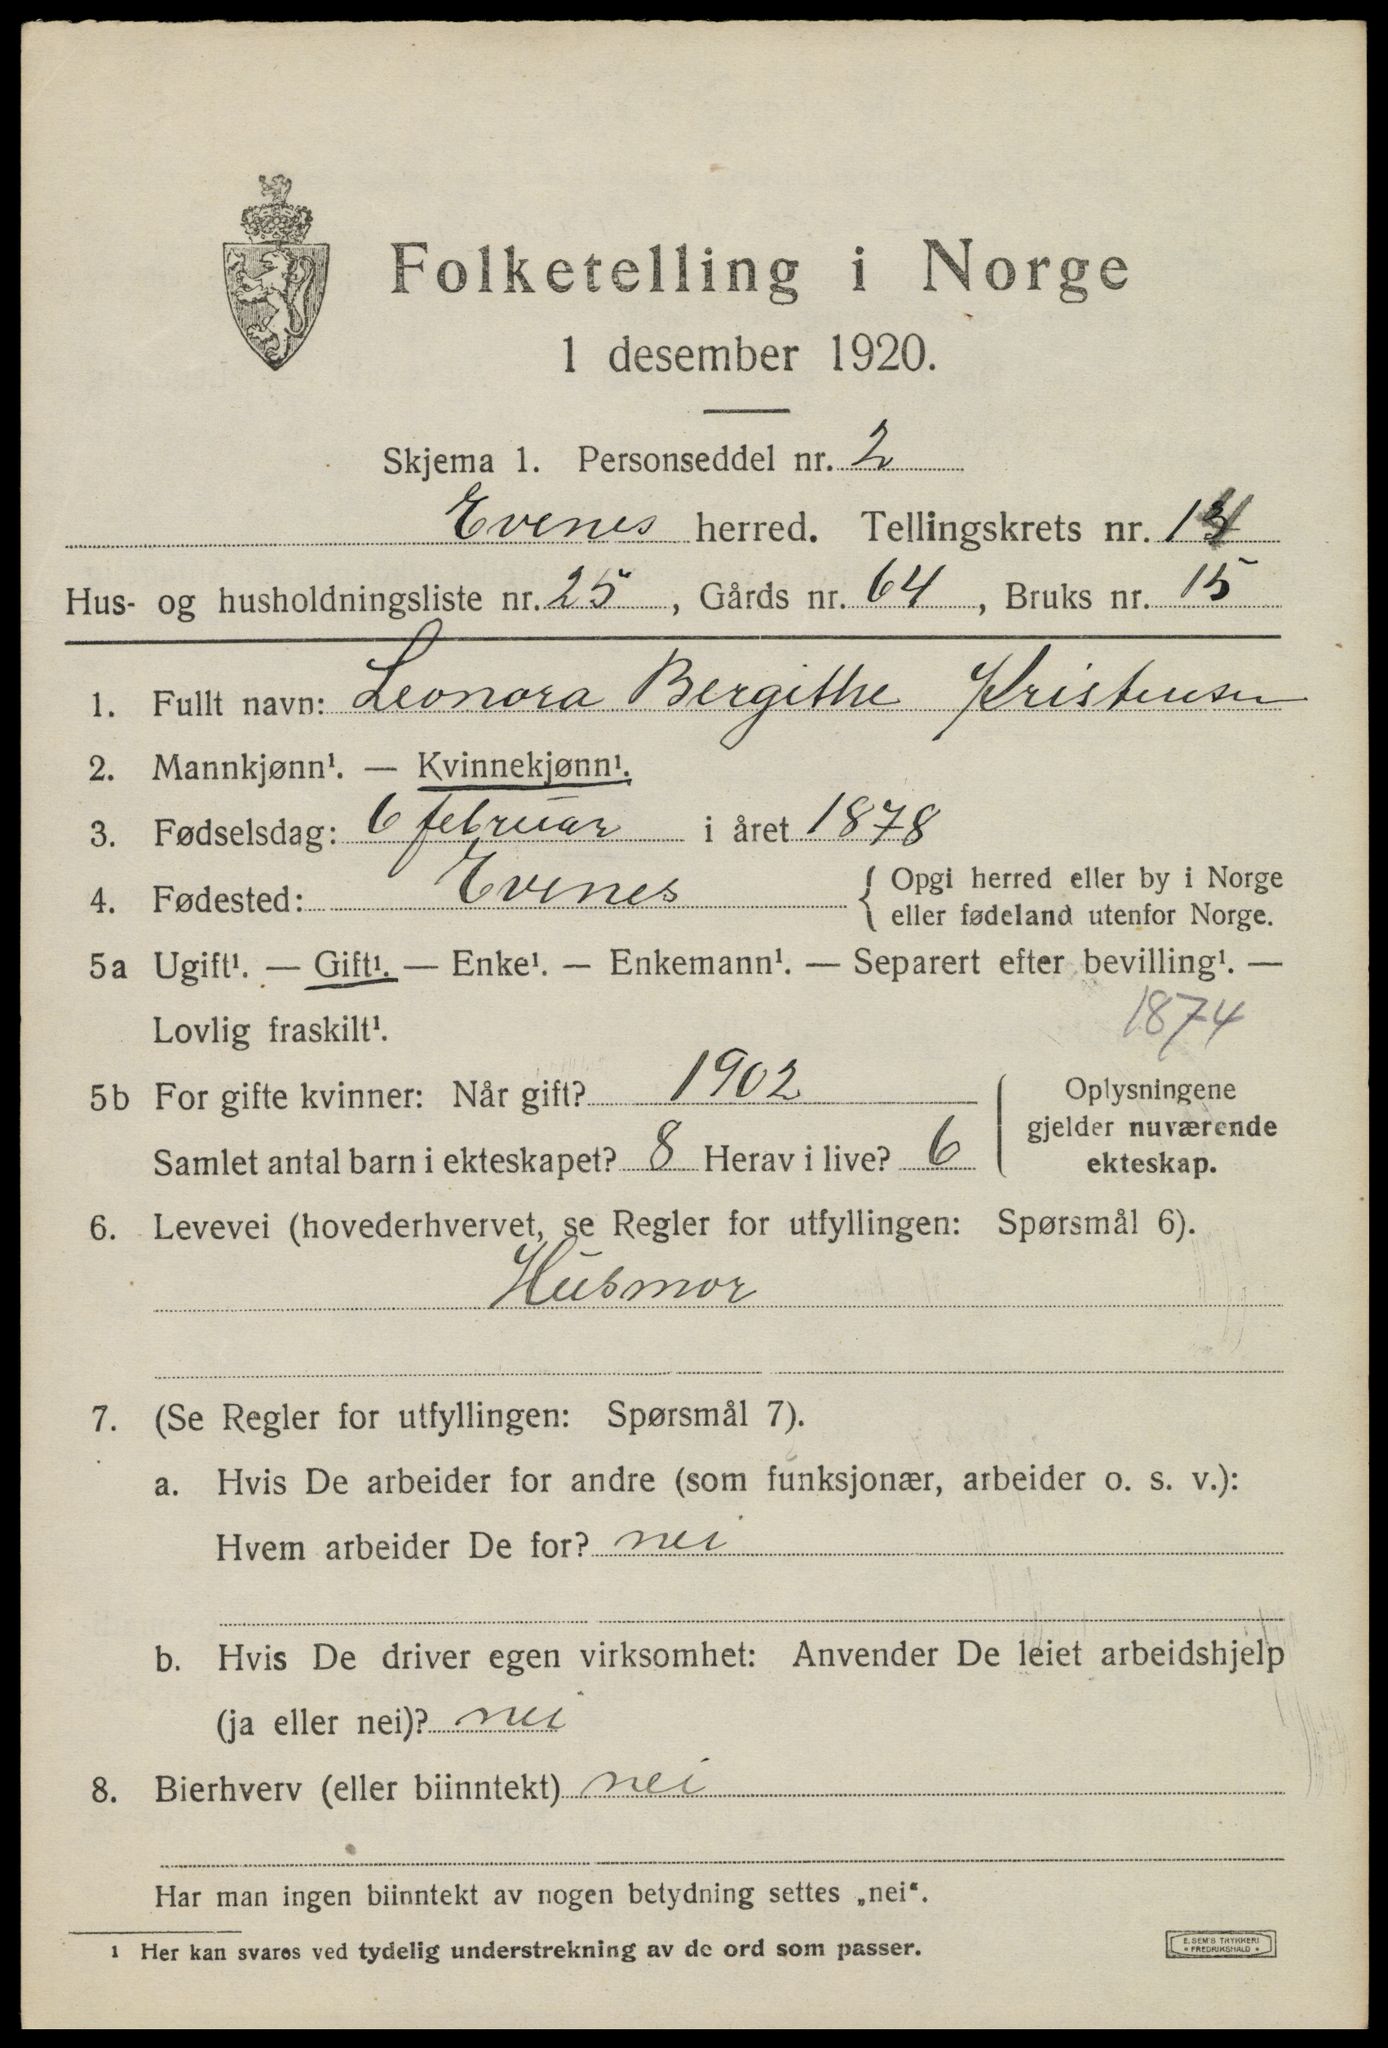 Folketelling i Norge
1 desember 1920.
Skjema 1. Personseddel nr. 2
Evenes herred. Tellingskrets nr. 14
Hus- og husholdningsliste nr. 25, Gårds nr. 64, Bruks nr. 15
1. Fullt navn: Leonora Bergithe Kristensen
2. Mannkjønn¹. — Kvinnekjønn¹.
3. Fødselsdag: 6 februar i året 1878
4. Fødested: Evenes { Opgi herred eller by i Norge
eller fødeland utenfor Norge.
5a Ugift¹. — Gift¹. — Enke¹. — Enkemann¹. — Separert efter bevilling¹. —
Lovlig fraskilt¹.
1874
5b For gifte kvinner: Når gift? 1902
Samlet antal barn i ekteskapet? 8 Herav i live? 6
Oplysningene
gjelder nuværende
ekteskap.
6. Levevei (hovederhvervet, se Regler for utfyllingen: Spørsmål 6).
Husmor
7. (Se Regler for utfyllingen: Spørsmål 7).
a. Hvis De arbeider for andre (som funksjonær, arbeider o. s. v.):
Hvem arbeider De for? nei
b. Hvis De driver egen virksomhet: Anvender De leiet arbeidshjelp
(ja eller nei)? nei
8. Bierhverv (eller biinntekt) nei
Har man ingen biinntekt av nogen betydning settes „nei“.
¹ Her kan svares ved tydelig understrekning av de ord som passer.
E. SEM'S TRYKKERI
* FREDRIKSHALD *